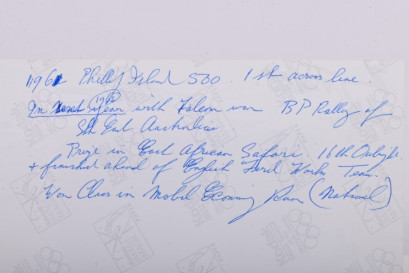 1961 Phillip Island 500. 1st across line.
In next year with Falcon won BP Rally of
Sth East Australia
Prize in East African Safari. 16th Outright
+ finished ahead of English Ford Works Team.
Won Class in Mobil Economy Run (National)